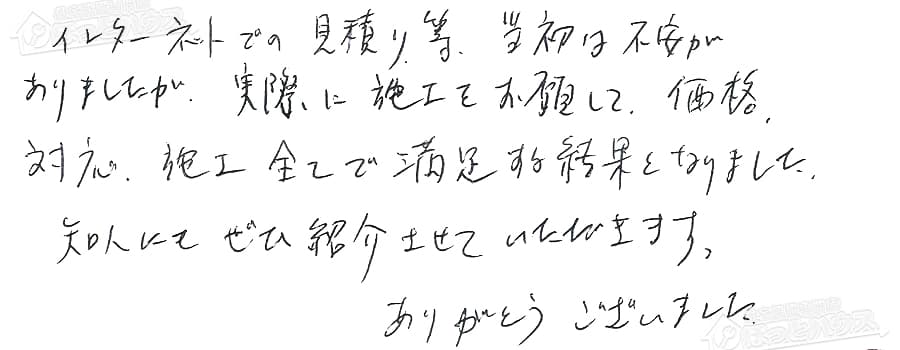 インターネットでの見積り等、当初は不安が
ありましたが、実際に施工をお願して、価格、
対応、施工全てで満足する結果となりました。
知人にもぜひ紹介させていただきます。
ありがとうございました。